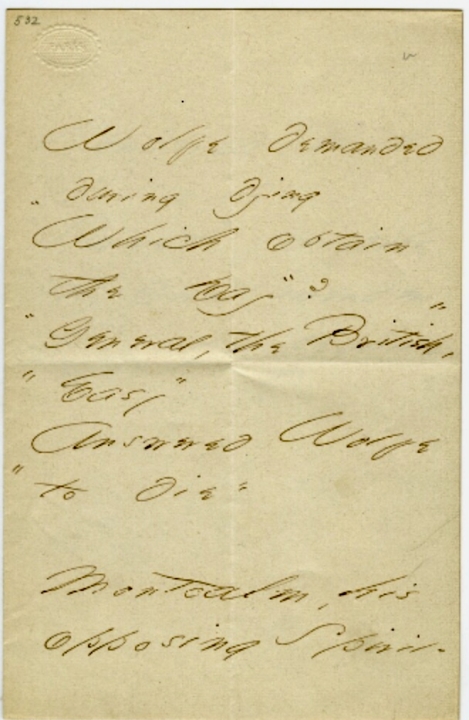 532
PARIS
Wolfe demanded
"during dying
Which obtain
the Day"?
"General, the British,"
"Easy"
Answered Wolfe
"to die"
Montcalm, his
opposing Spirit